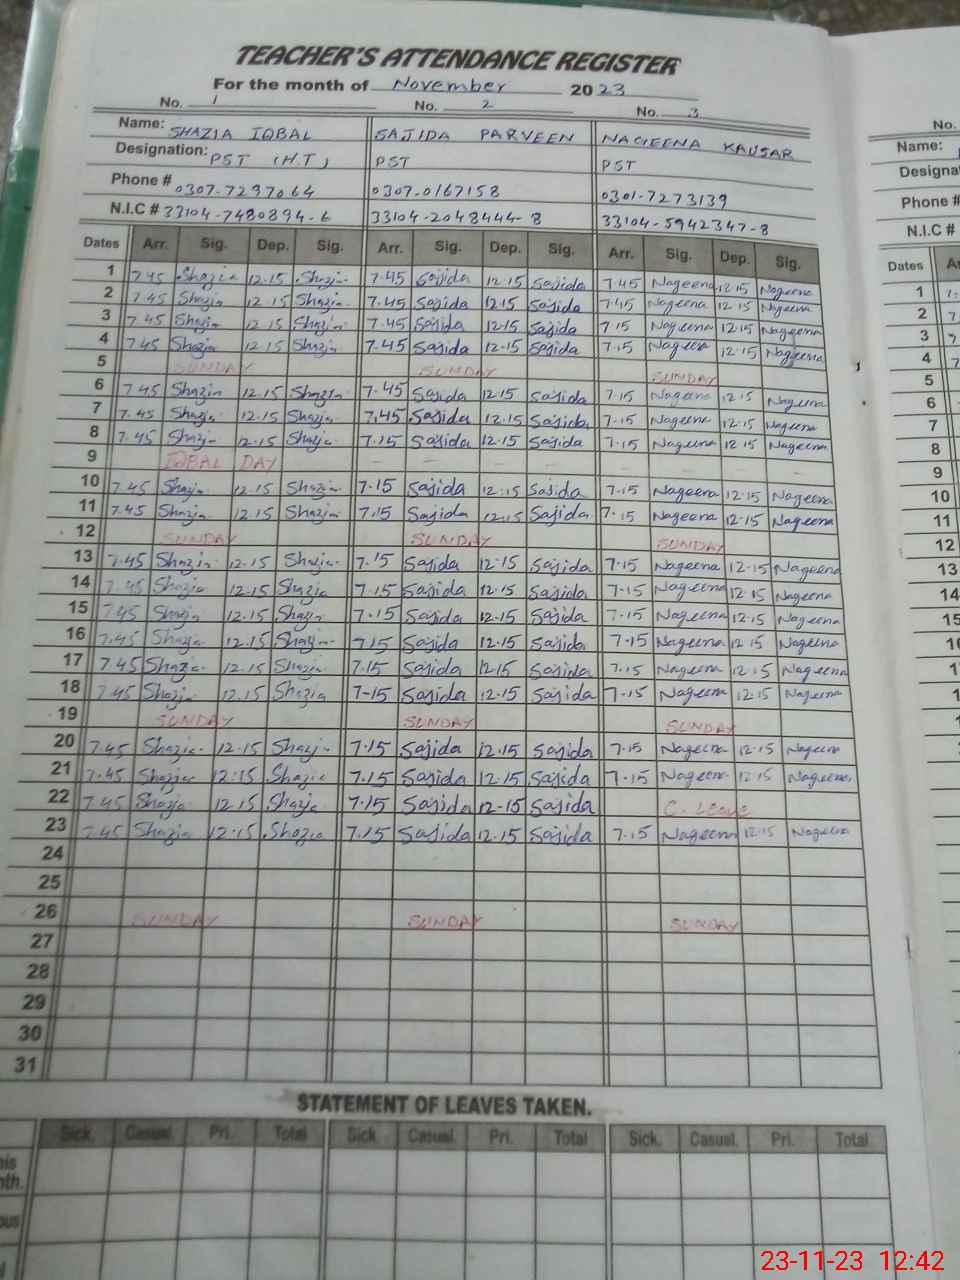 TEACHER'S ATTENDANCE REGISTER
For the month of November 2023
No. 1 No. 2 No. 3 No.
Name: SHAZIA IQBAL SAJIDA PARVEEN NAGEENA KAUSAR Name:
Designation: PST (H.T) PST PST Designa
Phone # 0307-7297064 0307-0167158 0301-7273139 Phone #
N.I.C # 33104-7480894-6 33104-2048444-8 33104-5942347-8 N.I.C #
Dates Arr. Sig. Dep. Sig. Arr. Sig. Dep. Sig. Arr. Sig. Dep. Sig. Dates
1 7.45 Shazia 12.15 Shazia 7.45 Sajida 12.15 Sajida 7.45 Nageena 12.15 Nageena 1
2 7.45 Shazia 12.15 Shazia 7.45 Sajida 12.15 Sajida 7.45 Nageena 12.15 Nageena 2
3 7.45 Shazia 12.15 Shazia 7.45 Sajida 12.15 Sajida 7.15 Nageena 12.15 Nageena 3
4 7.45 Shazia 12.15 Shazia 7.45 Sajida 12.15 Sajida 7.15 Nageena 12.15 Nageena 4
5 SUNDAY SUNDAY SUNDAY 5
6 7.45 Shazia 12.15 Shazia 7.45 Sajida 12.15 Sajida 7.15 Nageena 12.15 Nageena 6
7 7.45 Shazia 12.15 Shazia 7.45 Sajida 12.15 Sajida 7.15 Nageena 12.15 Nageena 7
8 7.45 Shazia 12.15 Shazia 7.15 Sajida 12.15 Sajida 7.15 Nageena 12.15 Nageena 8
9 IQBAL DAY 9
10 7.45 Shazia 12.15 Shazia 7.15 Sajida 12.15 Sajida 7.15 Nageena 12.15 Nageena 10
11 7.45 Shazia 12.15 Shazia 7.15 Sajida 12.15 Sajida 7.15 Nageena 12.15 Nageena 11
12 SUNDAY SUNDAY SUNDAY 12
13 7.45 Shazia 12.15 Shazia 7.15 Sajida 12.15 Sajida 7.15 Nageena 12.15 Nageena 13
14 7.45 Shazia 12.15 Shazia 7.15 Sajida 12.15 Sajida 7.15 Nageena 12.15 Nageena 14
15 7.45 Shazia 12.15 Shazia 7.15 Sajida 12.15 Sajida 7.15 Nageena 12.15 Nageena 15
16 7.45 Shazia 12.15 Shazia 7.15 Sajida 12.15 Sajida 7.15 Nageena 12.15 Nageena
17 7.45 Shazia 12.15 Shazia 7.15 Sajida 12.15 Sajida 7.15 Nageena 12.15 Nageena
18 7.45 Shazia 12.15 Shazia 7-15 Sajida 12.15 Sajida 7-15 Nageena 12.15 Nageena
19 SUNDAY SUNDAY SUNDAY
20 7.45 Shazia 12.15 Shazia 7.15 Sajida 12.15 Sajida 7.15 Nageena 12.15 Nageena
21 7.45 Shazia 12.15 Shazia 7.15 Sajida 12.15 Sajida 7-15 Nageena 12.15 Nageena
22 7.45 Shazia 12.15 Shazia 7.15 Sajida 12-15 Sajida C. Leave
23 7.45 Shazia 12.15 Shazia 7.15 Sajida 12.15 Sajida 7.15 Nageena 12.15 Nageena
24
25
26 SUNDAY SUNDAY SUNDAY
27
28
29
30
31
STATEMENT OF LEAVES TAKEN.
Sick. Casual. Pri. Total Sick. Casual. Pri. Total Sick. Casual. Pri. Total
his
nth.
ous
23-11-23 12:42